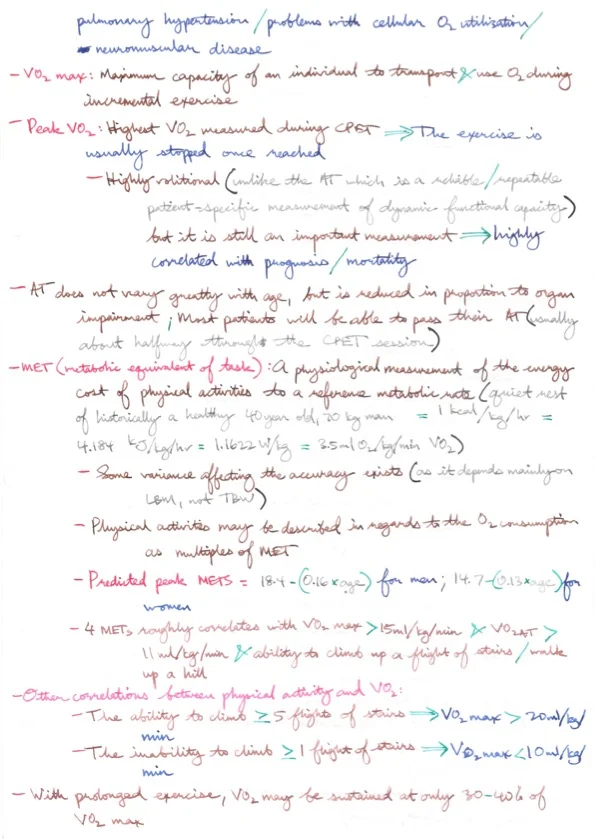 pulmonary hypertension/problems with cellular O₂ utilization/
neuromuscular disease
- VO₂ max: Maximum capacity of an individual to transport & use O₂ during
incremental exercise
- Peak VO₂: Highest VO₂ measured during CPET ⇒ The exercise is
usually stopped once reached
- Highly volitional (unlike the AT which is a reliable/repeatable
patient-specific measurement of dynamic functional capacity)
but it is still an important measurement ⇒ highly
correlated with prognosis/mortality
- AT does not vary greatly with age, but is reduced in proportion to organ
impairment; Most patients will be able to pass their AT (usually
about halfway through the CPET session)
- MET (metabolic equivalent of task): A physiological measurement of the energy
cost of physical activities to a reference metabolic rate (quiet rest
of historically a healthy 40 year old, 70 kg man = 1 kcal/kg/hr =
4.184 kJ/kg/hr = 1.1622 W/kg = 3.5ml O₂/kg/min VO₂)
- Some variance affecting the accuracy exists (as it depends mainly on
LBM, not TBW)
- Physical activities may be described in regards to the O₂ consumption
as multiples of MET
- Predicted peak METS = 18.4 - (0.16 × age) for men; 14.7 - (0.13 × age) for
women
- 4 METs roughly correlates with VO₂ max > 15ml/kg/min & VO₂AT >
11 ml/kg/min & ability to climb up a flight of stairs/walk
up a hill
- Other correlations between physical activity and VO₂:
- The ability to climb ≥ 5 flight of stairs ⇒ VO₂ max > 20ml/kg/
min
- The inability to climb ≥ 1 flight of stairs ⇒ VO₂ max < 10ml/kg/
min
- With prolonged exercise, VO₂ may be sustained at only 30-40% of
VO₂ max